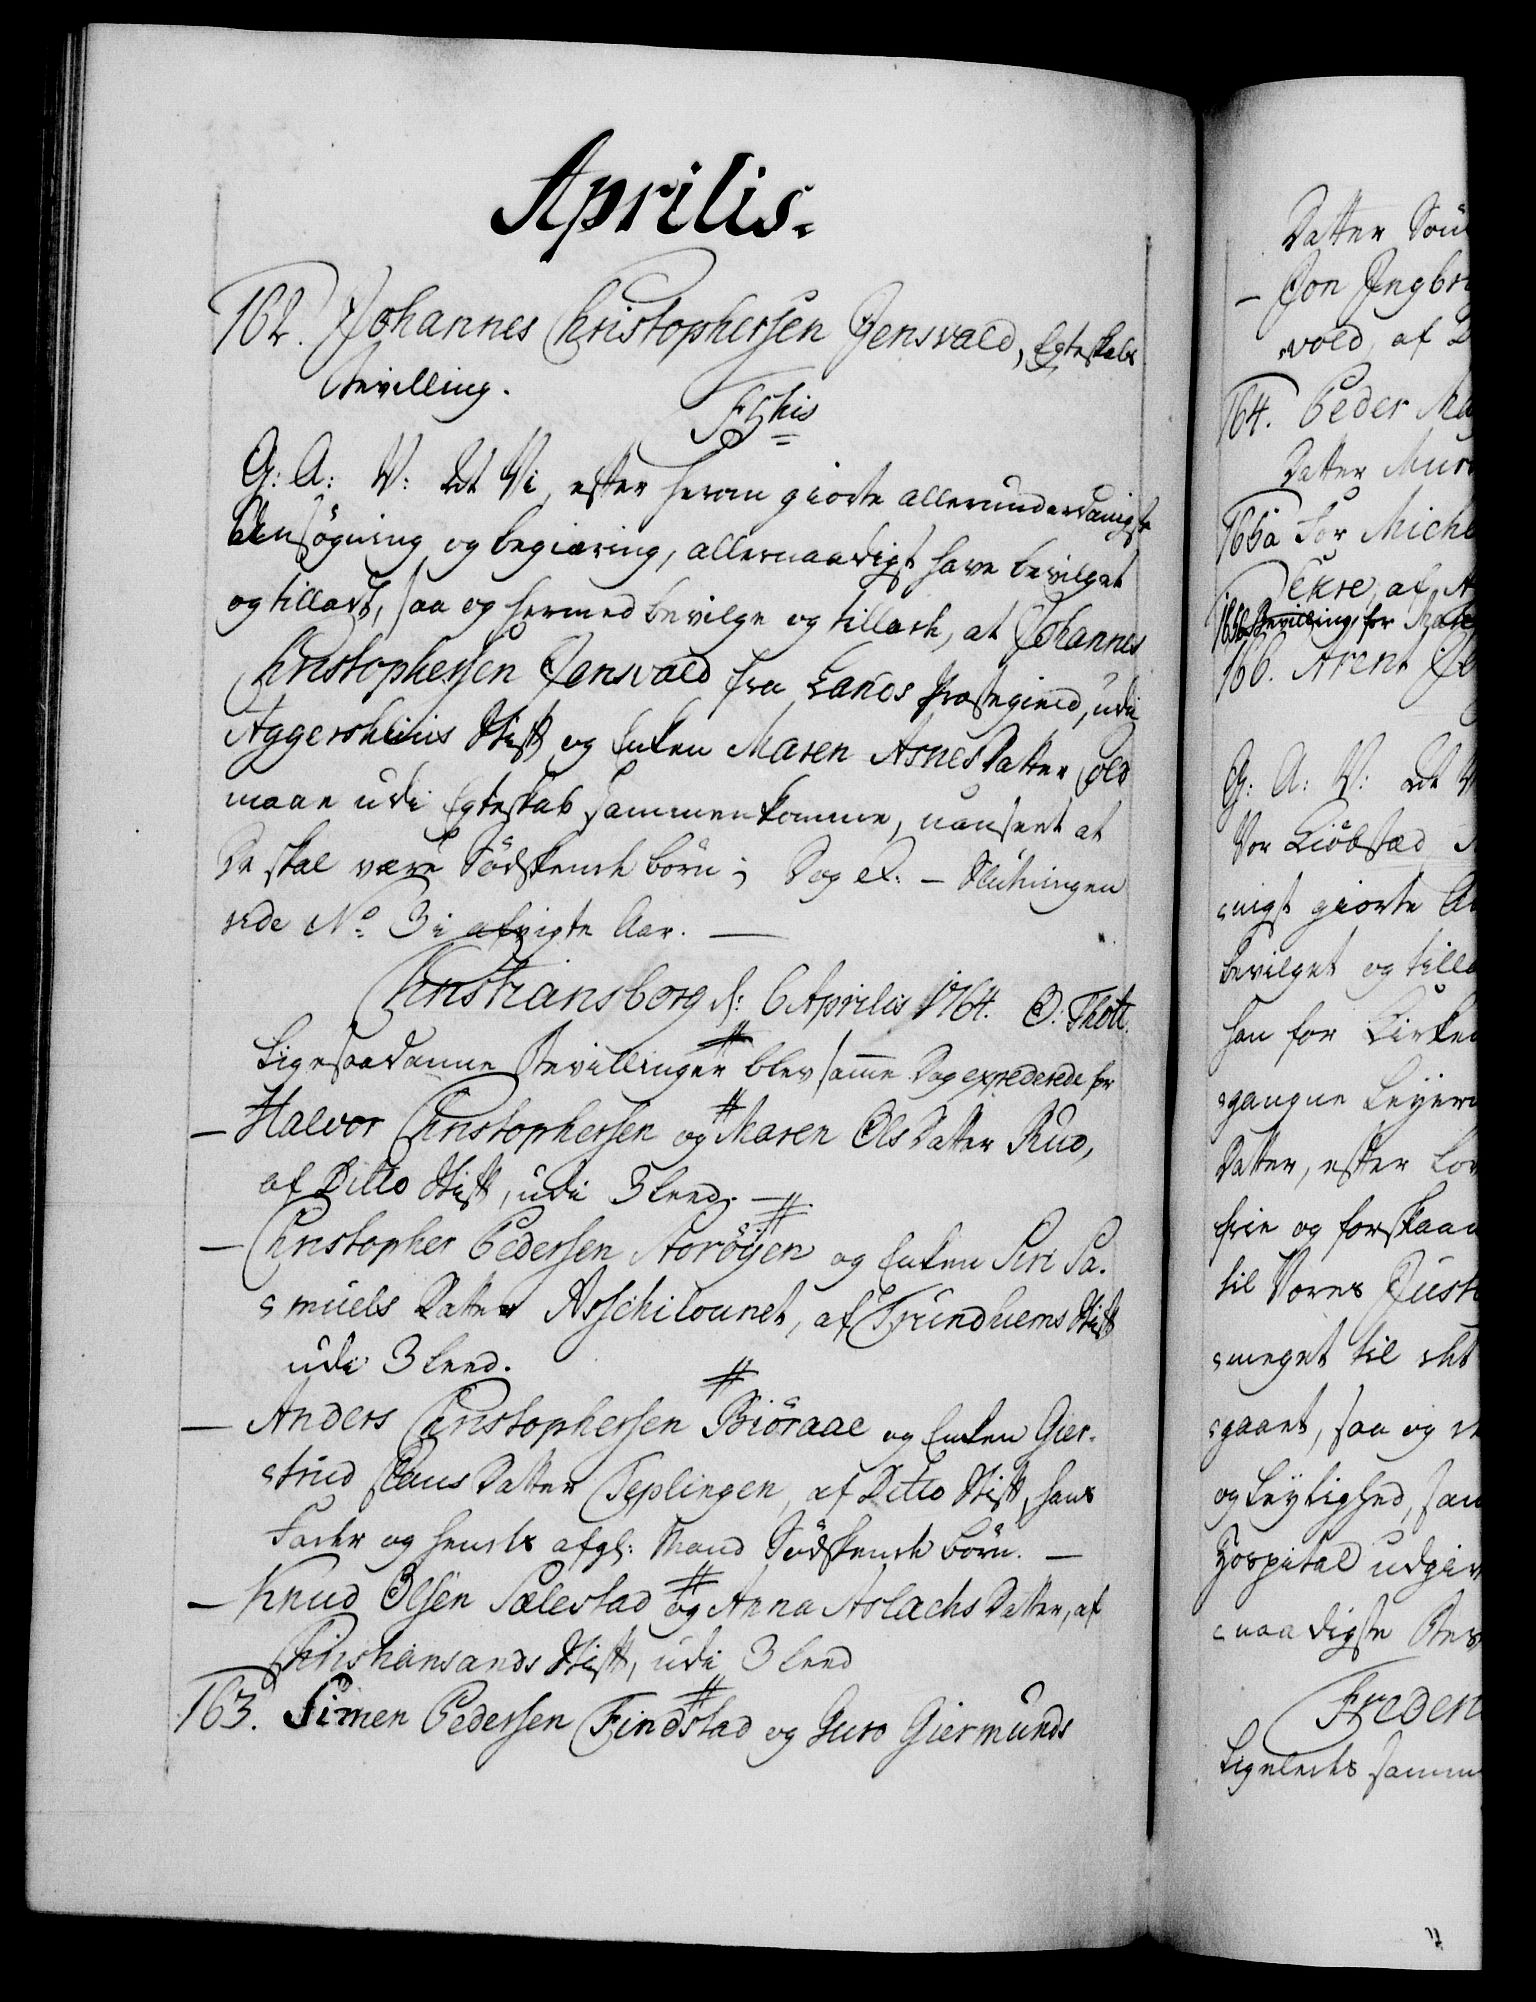 Aprilis.
162. Johannes Christophersen Jensvald, Egteskabs
Bevilling.
F5 his
G: A: V: At Vi, efter herom giorte allerunderdanigste
Ansøgning og begiæring, allernaadigst have bevilget
og tilladt, saa og hermed bevilge og tillade, at Johannes
Christophersen Jensvald fra Lands Præstegield, udi
Aggershuus Stift og Enken Maren Arnes Datter Fold
maae udi Egteskab sammenkomme, uanseet at
De skal være Södskende börn; Dog &. - Slutningen
vide No. 3 i afvigte Aar. —
Christiansborg d: 6 Aprilis 1764. O: Thott.
Ligesaadanne Bevillinger blev samme Dag expederede for
— Halvor Christophersen og Maren Ols Datter Rud,
af Ditto Stift, udi 3 Leed. —
— Christopher Pedersen Storöyen og Enken Siri Sa-
muels Datter Aschilounet, af Trundhiems Stift
udi 3 Leed.
— Anders Christophersen Biöraae og Enken Gier-
trud Claus Datter Teplingen, af Ditto Stift, hans
Fader og hendes afgl: Mand Södskende börn. —
— Knud Olsen Sælestad og Anna Aslachs Datter, af
Christiansands Stift, udi 3 Leed
163. Simen Pedersen Findstad og Guro Giermunds
Datter
— Jon Ingbr
vold, af
164. Peder
Datter
165a For Mich
Ekre, af
165b Bevilling, for
166. Arent
G: A: V: At V
Vor Kiöbstæd
nigst giorte
bevilget og till
han for Kirken
gangne Leyerm
Datter, efter Lov
frie og forskaan
til Vores Justi
meget til det
gaaet, saa og
og Leylighed, saa
Hospital udgiv
naadigste Bev
Frederi
Ligeledes samme